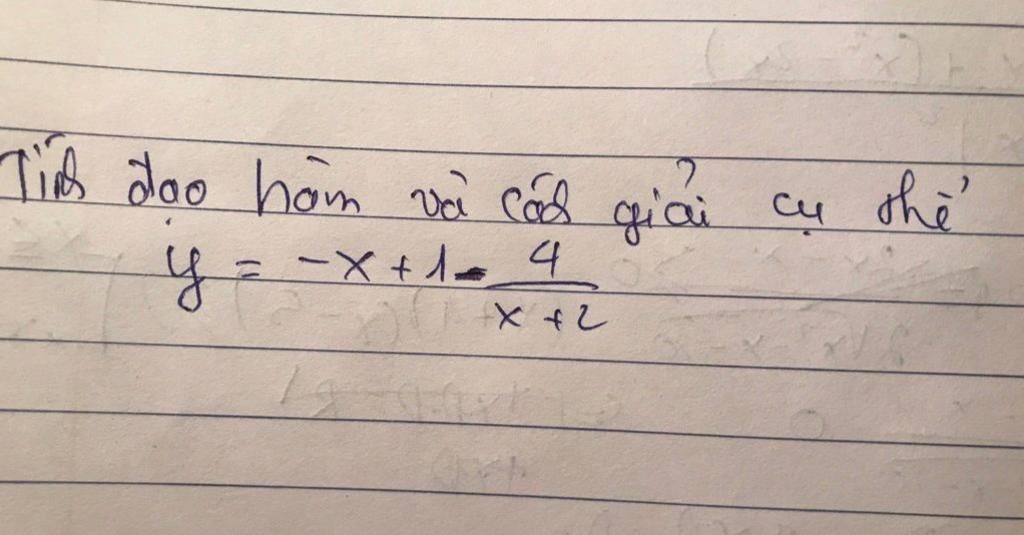 Tính đạo hàm và cách giải cụ thể
y = -x + 1 - 4/(x + 2)